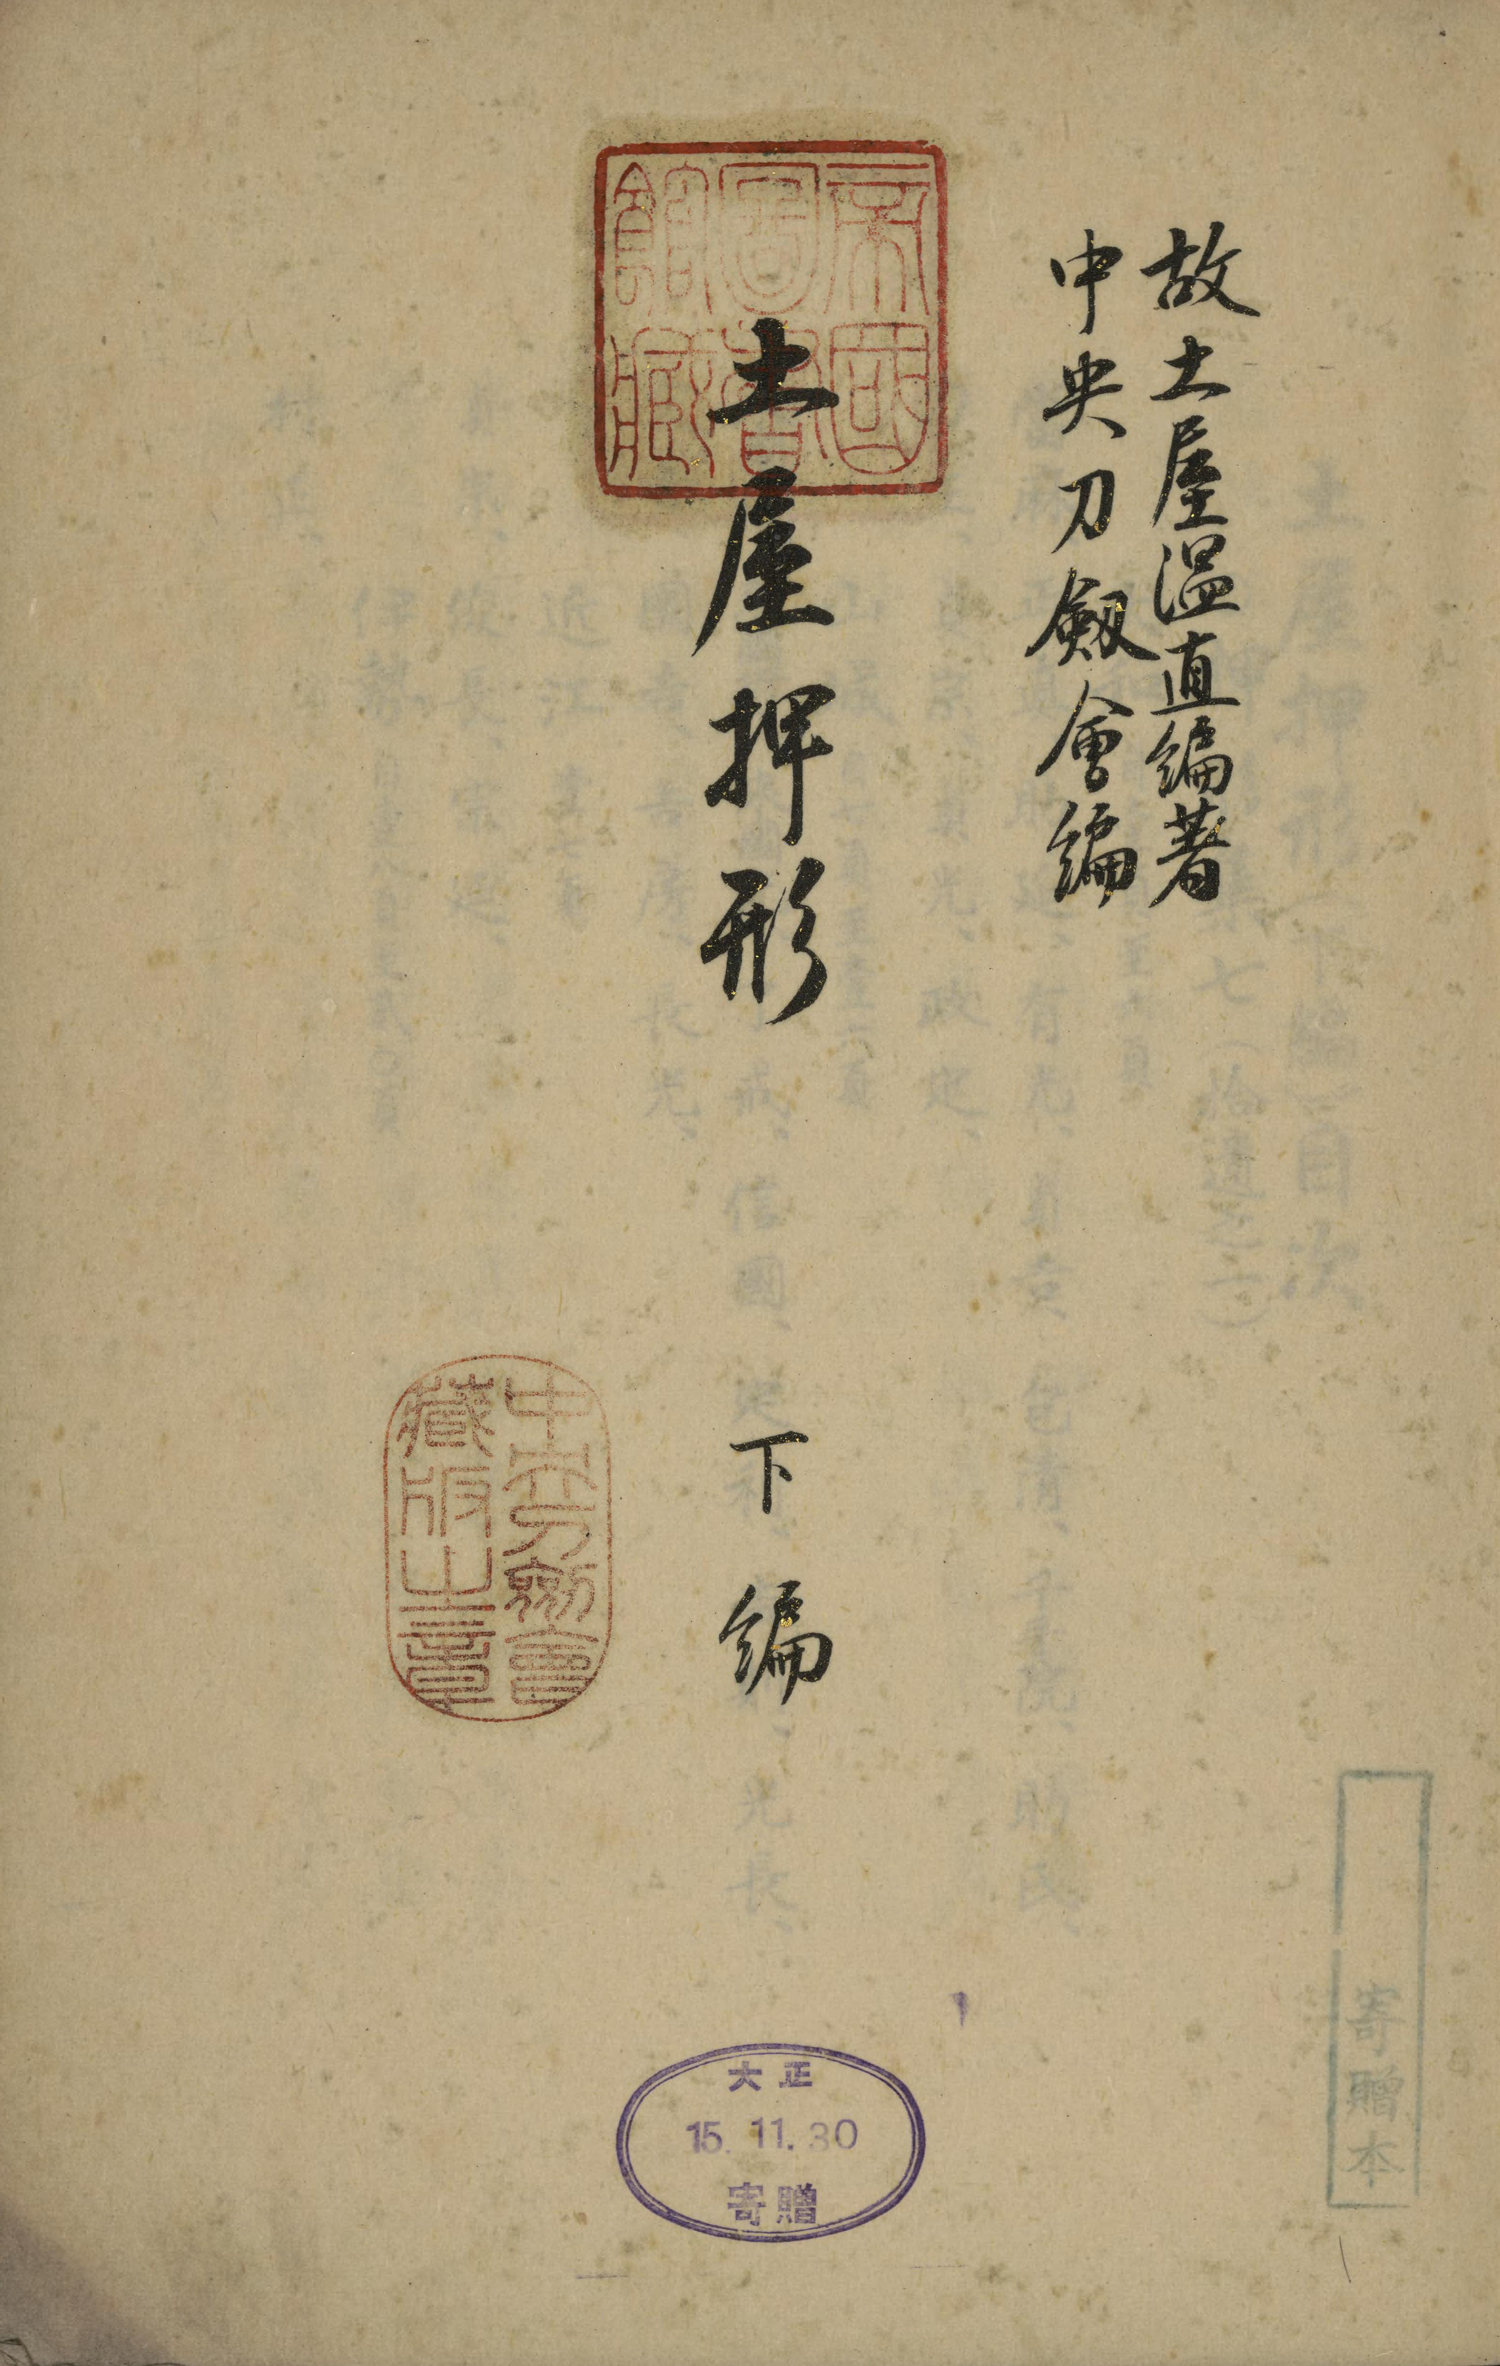 故土屋温直編著
中央刀劔會編
帝國
圖書
館藏
土屋押形 下編
中央刀劔會
藏版之章
大正
15.11.30
寄贈
寄贈本